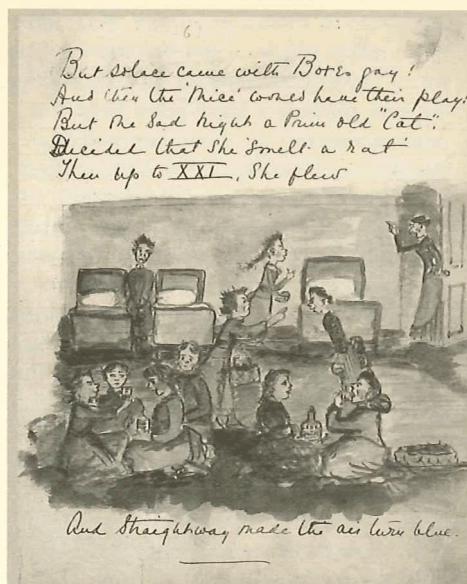 6
But solace came with Boxes gay!
And then the 'Mice' would have their play!
But One Sad Night a Prim old "Cat".
Decided that She smelt a rat
Then up to XXI, She flew
And Straightway made the air turn blue.